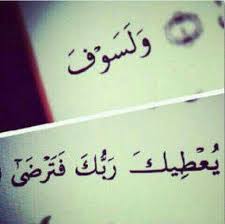 وَلَسَوْفَ
يُعْطِيكَ رَبُّكَ فَتَرْضَىٰ